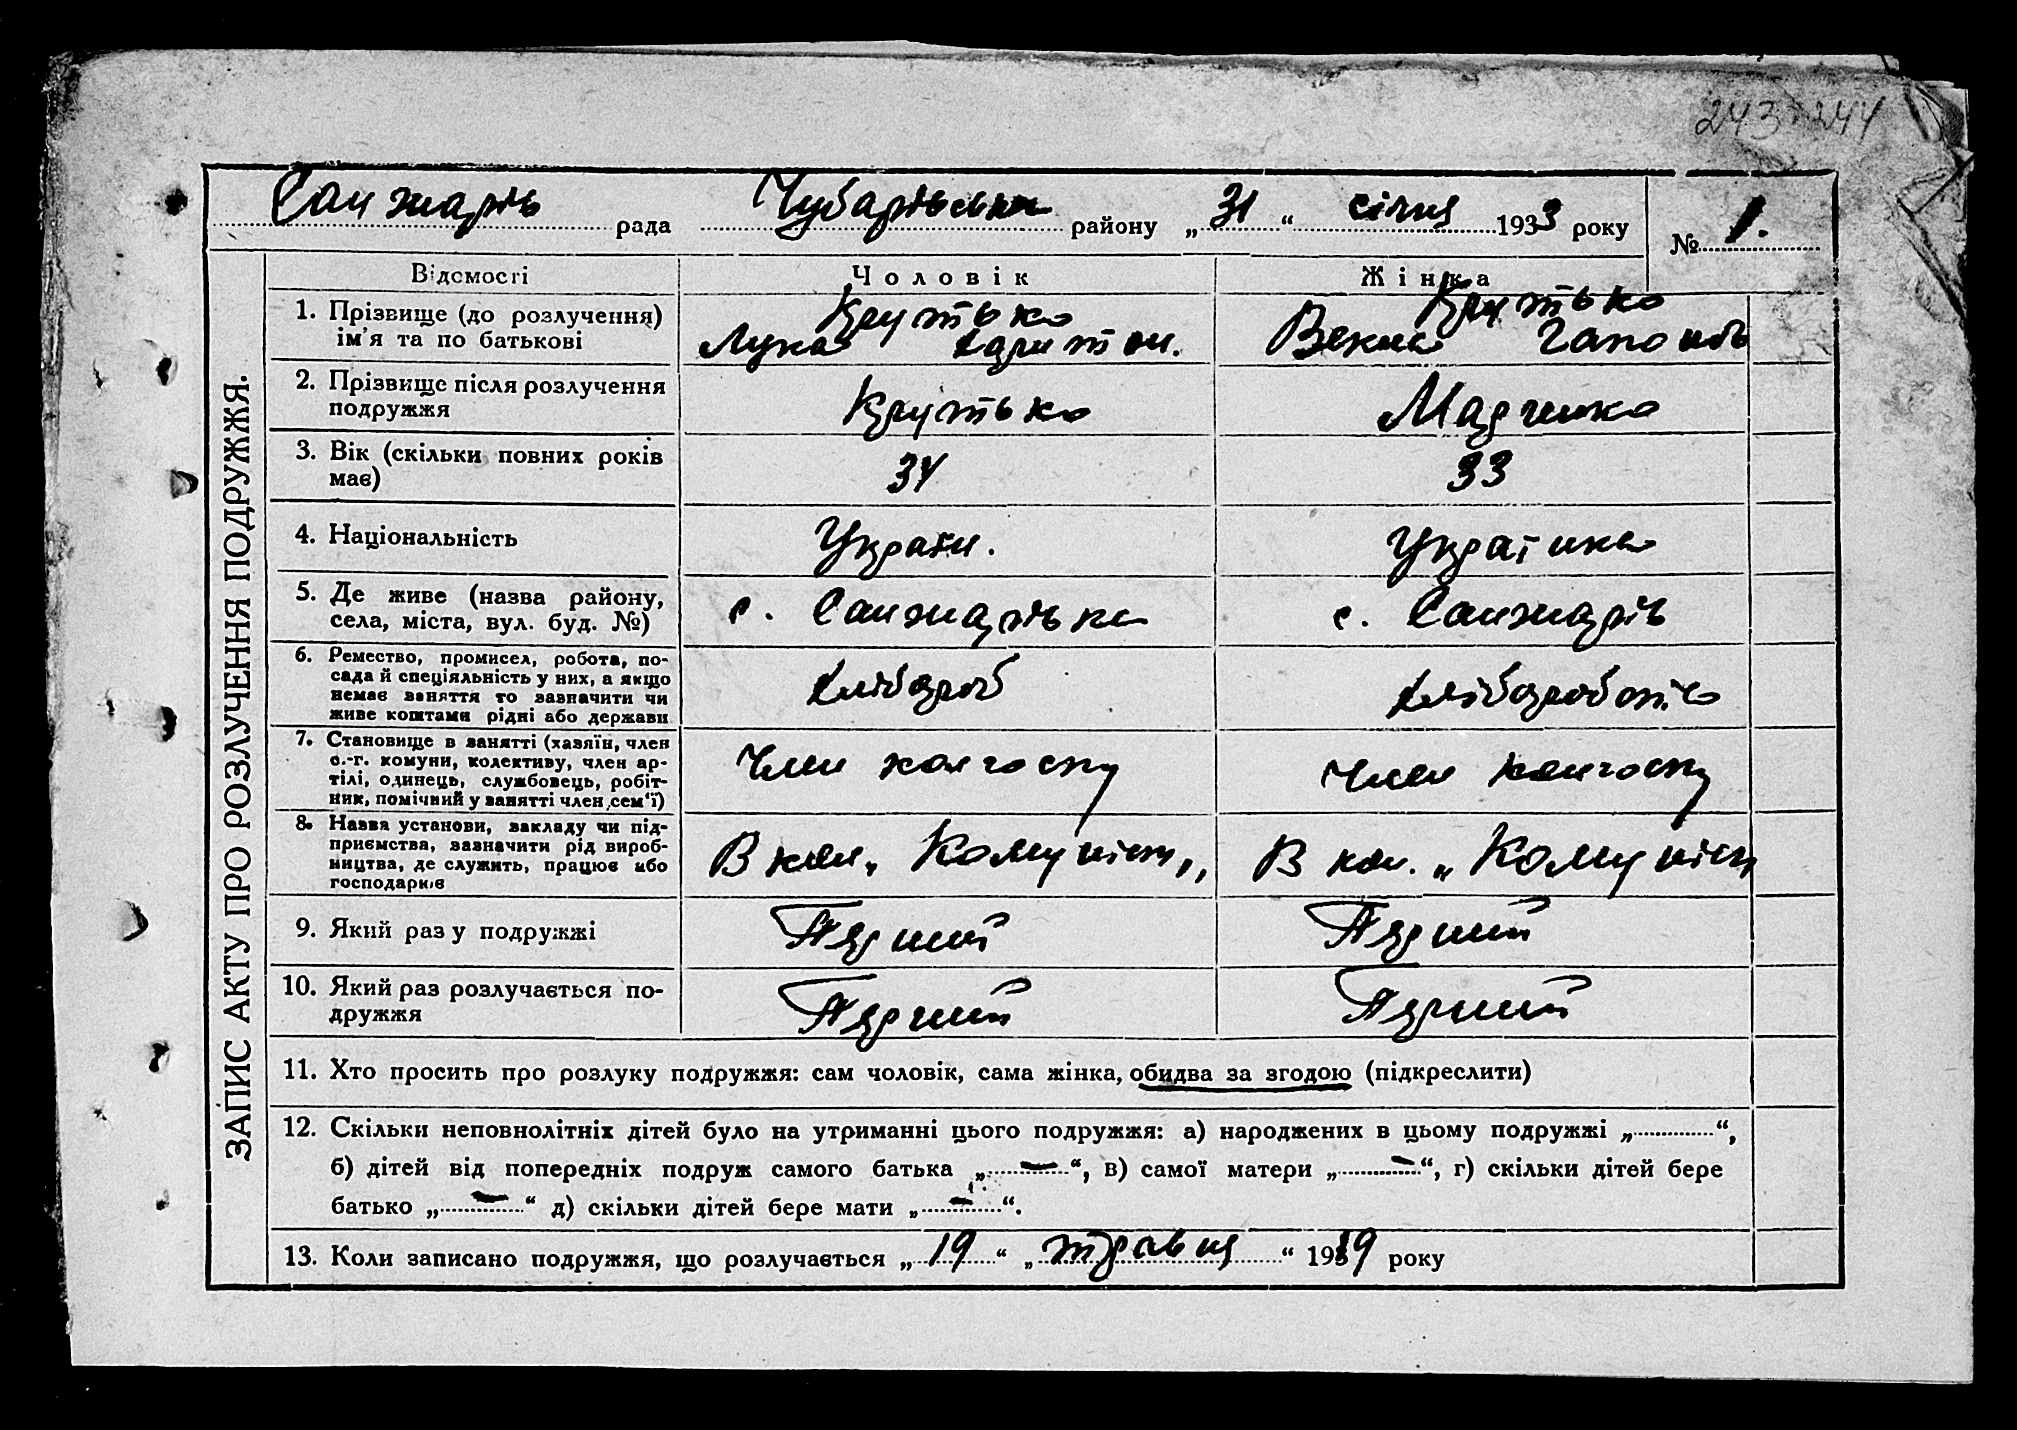 243 244
Санжарів рада Чубарівськ району „31“ січня 1933 року № 1.
ЗАПИС АКТУ ПРО РОЗЛУЧЕННЯ ПОДРУЖЖЯ.
Відомості Чоловік Жінка
1. Прізвище (до розлучення) Крутько Крутько
ім'я та по батькові Лука Харитон.
2. Прізвище після розлучення
подружжя Крутько
3. Вік (скільки повних років
має) 34 33
4. Національність Україн. Українка
5. Де живе (назва району,
села, міста, вул. буд. №) с. Санжарівка с. Санжарів
6. Ремество, промисел, робота, по-
сада й спеціяльність у них, а якщо
немає заняття то зазначити чи
живе коштами рідні або держави Хлібороб
7. Становище в занятті (хазяїн, член
с.-г. комуни, колективу, член ар-
тілі, одинець, службовець, робіт-
ник, помічний у занятті член сем'ї) Член колгоспу Член колгоспу
8. Назва установи, закладу чи під-
приємства, зазначити рід вироб-
ництва, де служить, працює або
господарює В кол. „Комуніст„ В кол. „Комуніст
9. Який раз у подружжі Перший Перший
10. Який раз розлучається по-
дружжя Перший Перший
11. Хто просить про розлуку подружжя: сам чоловік, сама жінка, обидва за згодою (підкреслити)
12. Скільки неповнолітніх дітей було на утриманні цього подружжя: а) народжених в цьому подружжі „..............“,
б) дітей від попередніх подруж самого батька „—“, в) самої матери „—“, г) скільки дітей бере
батько „—“ д) скільки дітей бере мати „—“.
13. Коли записано подружжя, що розлучається „19“ „травня“ 19 року